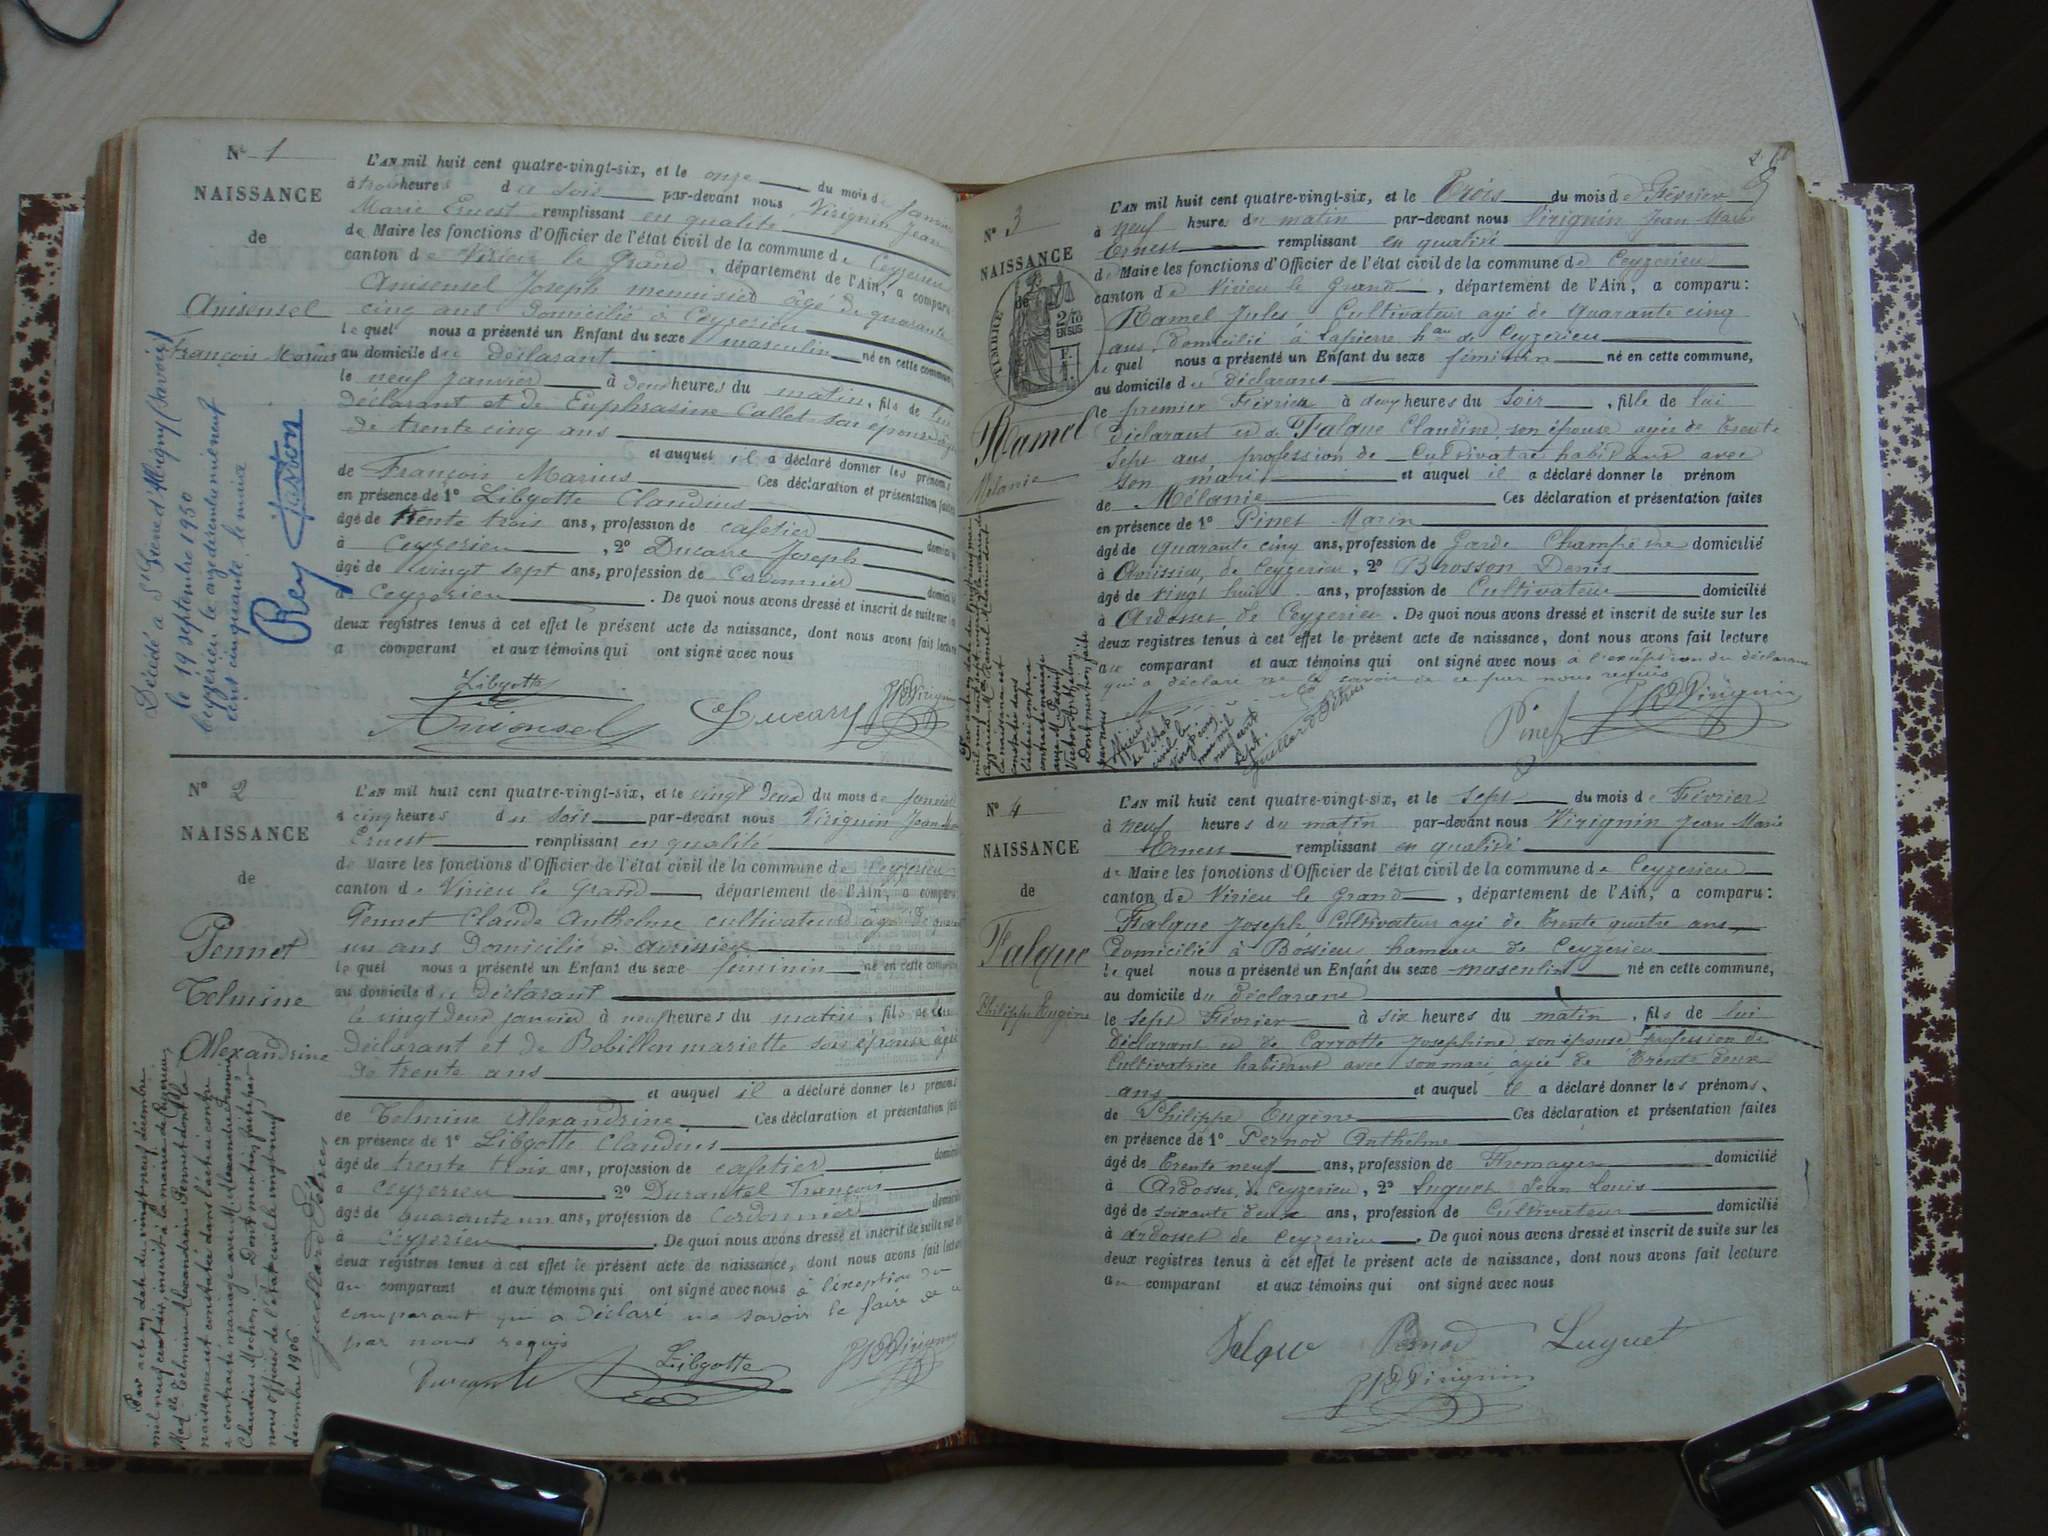 N° 1
NAISSANCE
de
Amiensel
François Marius
Décédé a St Pierre d'Albigny (Savoie)
le 19 septembre 1950
Ceyzerieu le onze
cent cinquante le maire
Rey
L'AN mil huit cent quatre-vingt-six, et le onze du mois de janvier
à trois heures du soir par-devant nous Virignin Jean
Marie Ernest remplissant en qualité
de Maire les fonctions d'Officier de l'état civil de la commune de Ceyzerieu
canton de Virieu le Grand, département de l'Ain, a comparu
Amiensel Joseph menuisier âgé de quarante
cinq ans Domicilié à Ceyzerieu
lequel nous a présenté un Enfant du sexe masculin né en cette commune
au domicile du déclarant
le neuf janvier à deux heures du matin, fils de lui
déclarant et de Euphrasine Callet son épouse âgée
de trente cinq ans
et auquel il a déclaré donner les prénoms
de François Marius Ces déclaration et présentation faites
en présence de 1° Libgotte Claudius
âgé de trente trois ans, profession de cafetier domicilié
à Ceyzerieu, 2° Ducarre Joseph
âgé de vingt sept ans, profession de Cordonnier domicilié
à Ceyzerieu. De quoi nous avons dressé et inscrit de suite sur les
deux registres tenus à cet effet le présent acte de naissance, dont nous avons fait lecture
a comparant et aux témoins qui ont signé avec nous
Libgotte
Amiensel
N° 2
NAISSANCE
de
Pennet
Telmine
Alexandrine
Par acte en date du vingt neuf décembre
mil neuf cent six, inscrit à la mairie de Ceyzerieu,
Melle Telmine Alexandrine Pennet dont la
naissance est constatée dans l'acte ci-contre
a contracté mariage avec M. Alexandre François
Claudius Mochon. Dont mention faite par
nous officier de l'état civil le vingt neuf
décembre 1906.
L'AN mil huit cent quatre-vingt-six, et le vingt deux du mois de janvier
à cinq heures du soir par-devant nous Virignin Jean Marie
Ernest remplissant en qualité
de Maire les fonctions d'Officier de l'état civil de la commune de Ceyzerieu
canton de Virieu le Grand, département de l'Ain, a comparu
Pennet Claude Anthelme cultivateur âgé de quarante
un ans Domicilié à Avrissieu
lequel nous a présenté un Enfant du sexe féminin né en cette commune
au domicile du Déclarant
le vingt deux janvier à neuf heures du matin, fils de lui
déclarant et de Bobillon mariette son épouse âgée
de trente ans
et auquel il a déclaré donner les prénoms
de Telmine Alexandrine Ces déclaration et présentation faites
en présence de 1° Libgotte Claudius
âgé de trente trois ans, profession de cafetier domicilié
à Ceyzerieu 2° Durantel François
âgé de quarante un ans, profession de Cordonnier domicilié
à Ceyzerieu. De quoi nous avons dressé et inscrit de suite sur les
deux registres tenus à cet effet le présent acte de naissance, dont nous avons fait lecture
au comparant et aux témoins qui ont signé avec nous à l'exception du
comparant qui a déclaré ne savoir le faire de ce
par nous requis
Libgotte
N° 3
NAISSANCE
de
TIMBRE
2/10
EN SUS
Ramel
Mélanie
L'AN mil huit cent quatre-vingt-six, et le Trois du mois de Février
à neuf heure du matin par-devant nous Virignin Jean Marie
Ernest remplissant en qualité
de Maire les fonctions d'Officier de l'état civil de la commune de Ceyzerieu
canton de Virieu le Grand, département de l'Ain, a comparu:
Ramel Jules Cultivateur agé de Quarante cinq
ans, domicilié à Lapierre hau de Ceyzerieu
lequel nous a présenté un Enfant du sexe féminin né en cette commune,
au domicile du déclarant
le premier Février à deux heures du Soir, fille de lui
déclarant et de Falque Claudine son épouse agée de Trente
Sept ans profession de Cultivatre habitant avec
son mari et auquel il a déclaré donner le prénom
de Mélanie Ces déclaration et présentation faites
en présence de 1° Pinet Marin
âgé de quarante cinq ans, profession de Garde Champêtre domicilié
à Avrissieu, de Ceyzerieu, 2° Brosson Denis
âgé de vingt huit ans, profession de Cultivateur domicilié
à Ardosset de Ceyzerieu. De quoi nous avons dressé et inscrit de suite sur les
deux registres tenus à cet effet le présent acte de naissance, dont nous avons fait lecture
au comparant et aux témoins qui ont signé avec nous à l'exception du déclarant
qui a déclaré ne le savoir de ce par nous requis
Pinet
N° 4
NAISSANCE
de
Falque
Philippe Eugène
L'AN mil huit cent quatre-vingt-six, et le Sept du mois de Février
à neuf heures du matin par-devant nous Virignin Jean Marie
Ernest remplissant en qualité
de Maire les fonctions d'Officier de l'état civil de la commune de Ceyzerieu
canton de Virieu le Grand, département de l'Ain, a comparu:
Falque Joseph Cultivateur agé de Trente quatre ans,
Domicilié à Bossieu hameau de Ceyzerieu
lequel nous a présenté un Enfant du sexe masculin né en cette commune,
au domicile du déclarant
le Sept Février à six heures du matin, fils de lui
déclarant et de Carrotte Josephine son épouse profession de
Cultivatrice habitant avec son mari, agée de Trente deux
ans et auquel il a déclaré donner les prénoms.
de Philippe Eugène Ces déclaration et présentation faites
en présence de 1° Pernod Anthelme
âgé de Trente neuf ans, profession de Fromager domicilié
à Ardosset, de Ceyzerieu, 2° Luquet Jean Louis
âgé de soixante deux ans, profession de Cultivateur domicilié
à Ardosset de Ceyzerieu. De quoi nous avons dressé et inscrit de suite sur les
deux registres tenus à cet effet le présent acte de naissance, dont nous avons fait lecture
au comparant et aux témoins qui ont signé avec nous
Falque Pernod Luquet